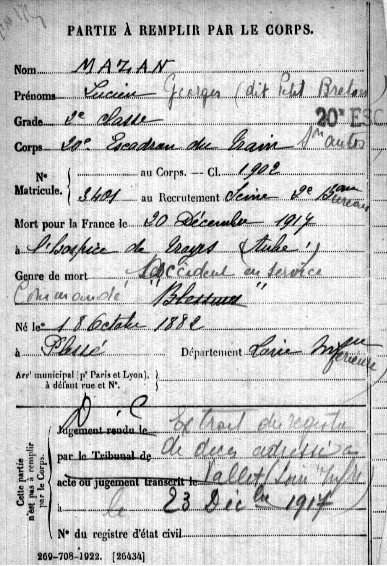 PARTIE À REMPLIR PAR LE CORPS.
Nom MAZAN
Prénoms Lucien Georges (dit Petit Breton)
Grade 2e Classe 20e ESC
Corps 20e Escadron du Train
N° Matricule. au Corps. — Cl. 1902
3401 au Recrutement Seine 2e Bureau
Mort pour la France le 20 Décembre 1917
à l'hospice de Troyes (Aube)
Genre de mort Accident en service
Commandé "Blessures"
Né le 18 Octobre 1882
à Plessé Département Loire Inférieure
Arrt municipal (pr Paris et Lyon),
à défaut rue et N°.
Cette partie n'est pas à remplir par le Corps.
Jugement rendu le Extrait du registre
par le Tribunal de de décès adressé à
acte ou jugement transcrit le Vallet (Loire Infre)
à le 23 Déc bre 1917
N° du registre d'état civil
269-708-1922. [26434]